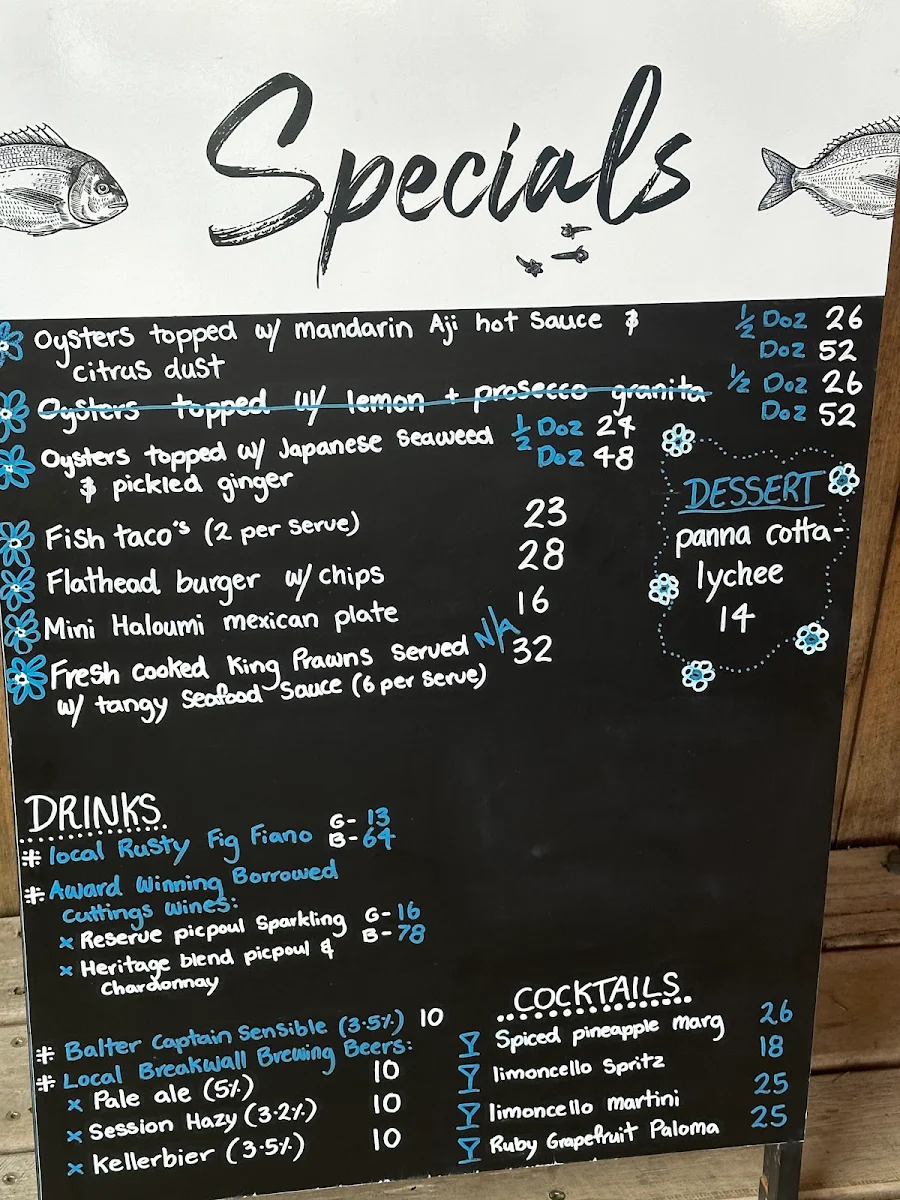 Specials
Oysters topped w/ mandarin Aji hot sauce & ½ Doz 26
citrus dust Doz 52
Oysters topped w/ lemon + prosecco granita ½ Doz 26
Doz 52
Oysters topped w/ Japanese seaweed ½ Doz 24
& pickled ginger Doz 48
Fish taco's (2 per serve) 23
Flathead burger w/ chips 28
Mini Haloumi mexican plate 16
Fresh cooked King Prawns served N/A 32
w/ tangy seafood sauce (6 per serve)
DESSERT
panna cotta-
lychee
14
DRINKS
# local Rusty Fig Fiano G- 13
B- 64
# Award Winning Borrowed
Cuttings wines:
x Reserve picpoul sparkling G- 16
B- 78
x Heritage blend picpoul &
Chardonnay
# Balter Captain Sensible (3.5%) 10
# Local Breakwall Brewing Beers:
x Pale ale (5%) 10
x Session Hazy (3.2%) 10
x Kellerbier (3.5%) 10
COCKTAILS
Spiced pineapple marg 26
limoncello Spritz 18
limoncello martini 25
Ruby Grapefruit Paloma 25